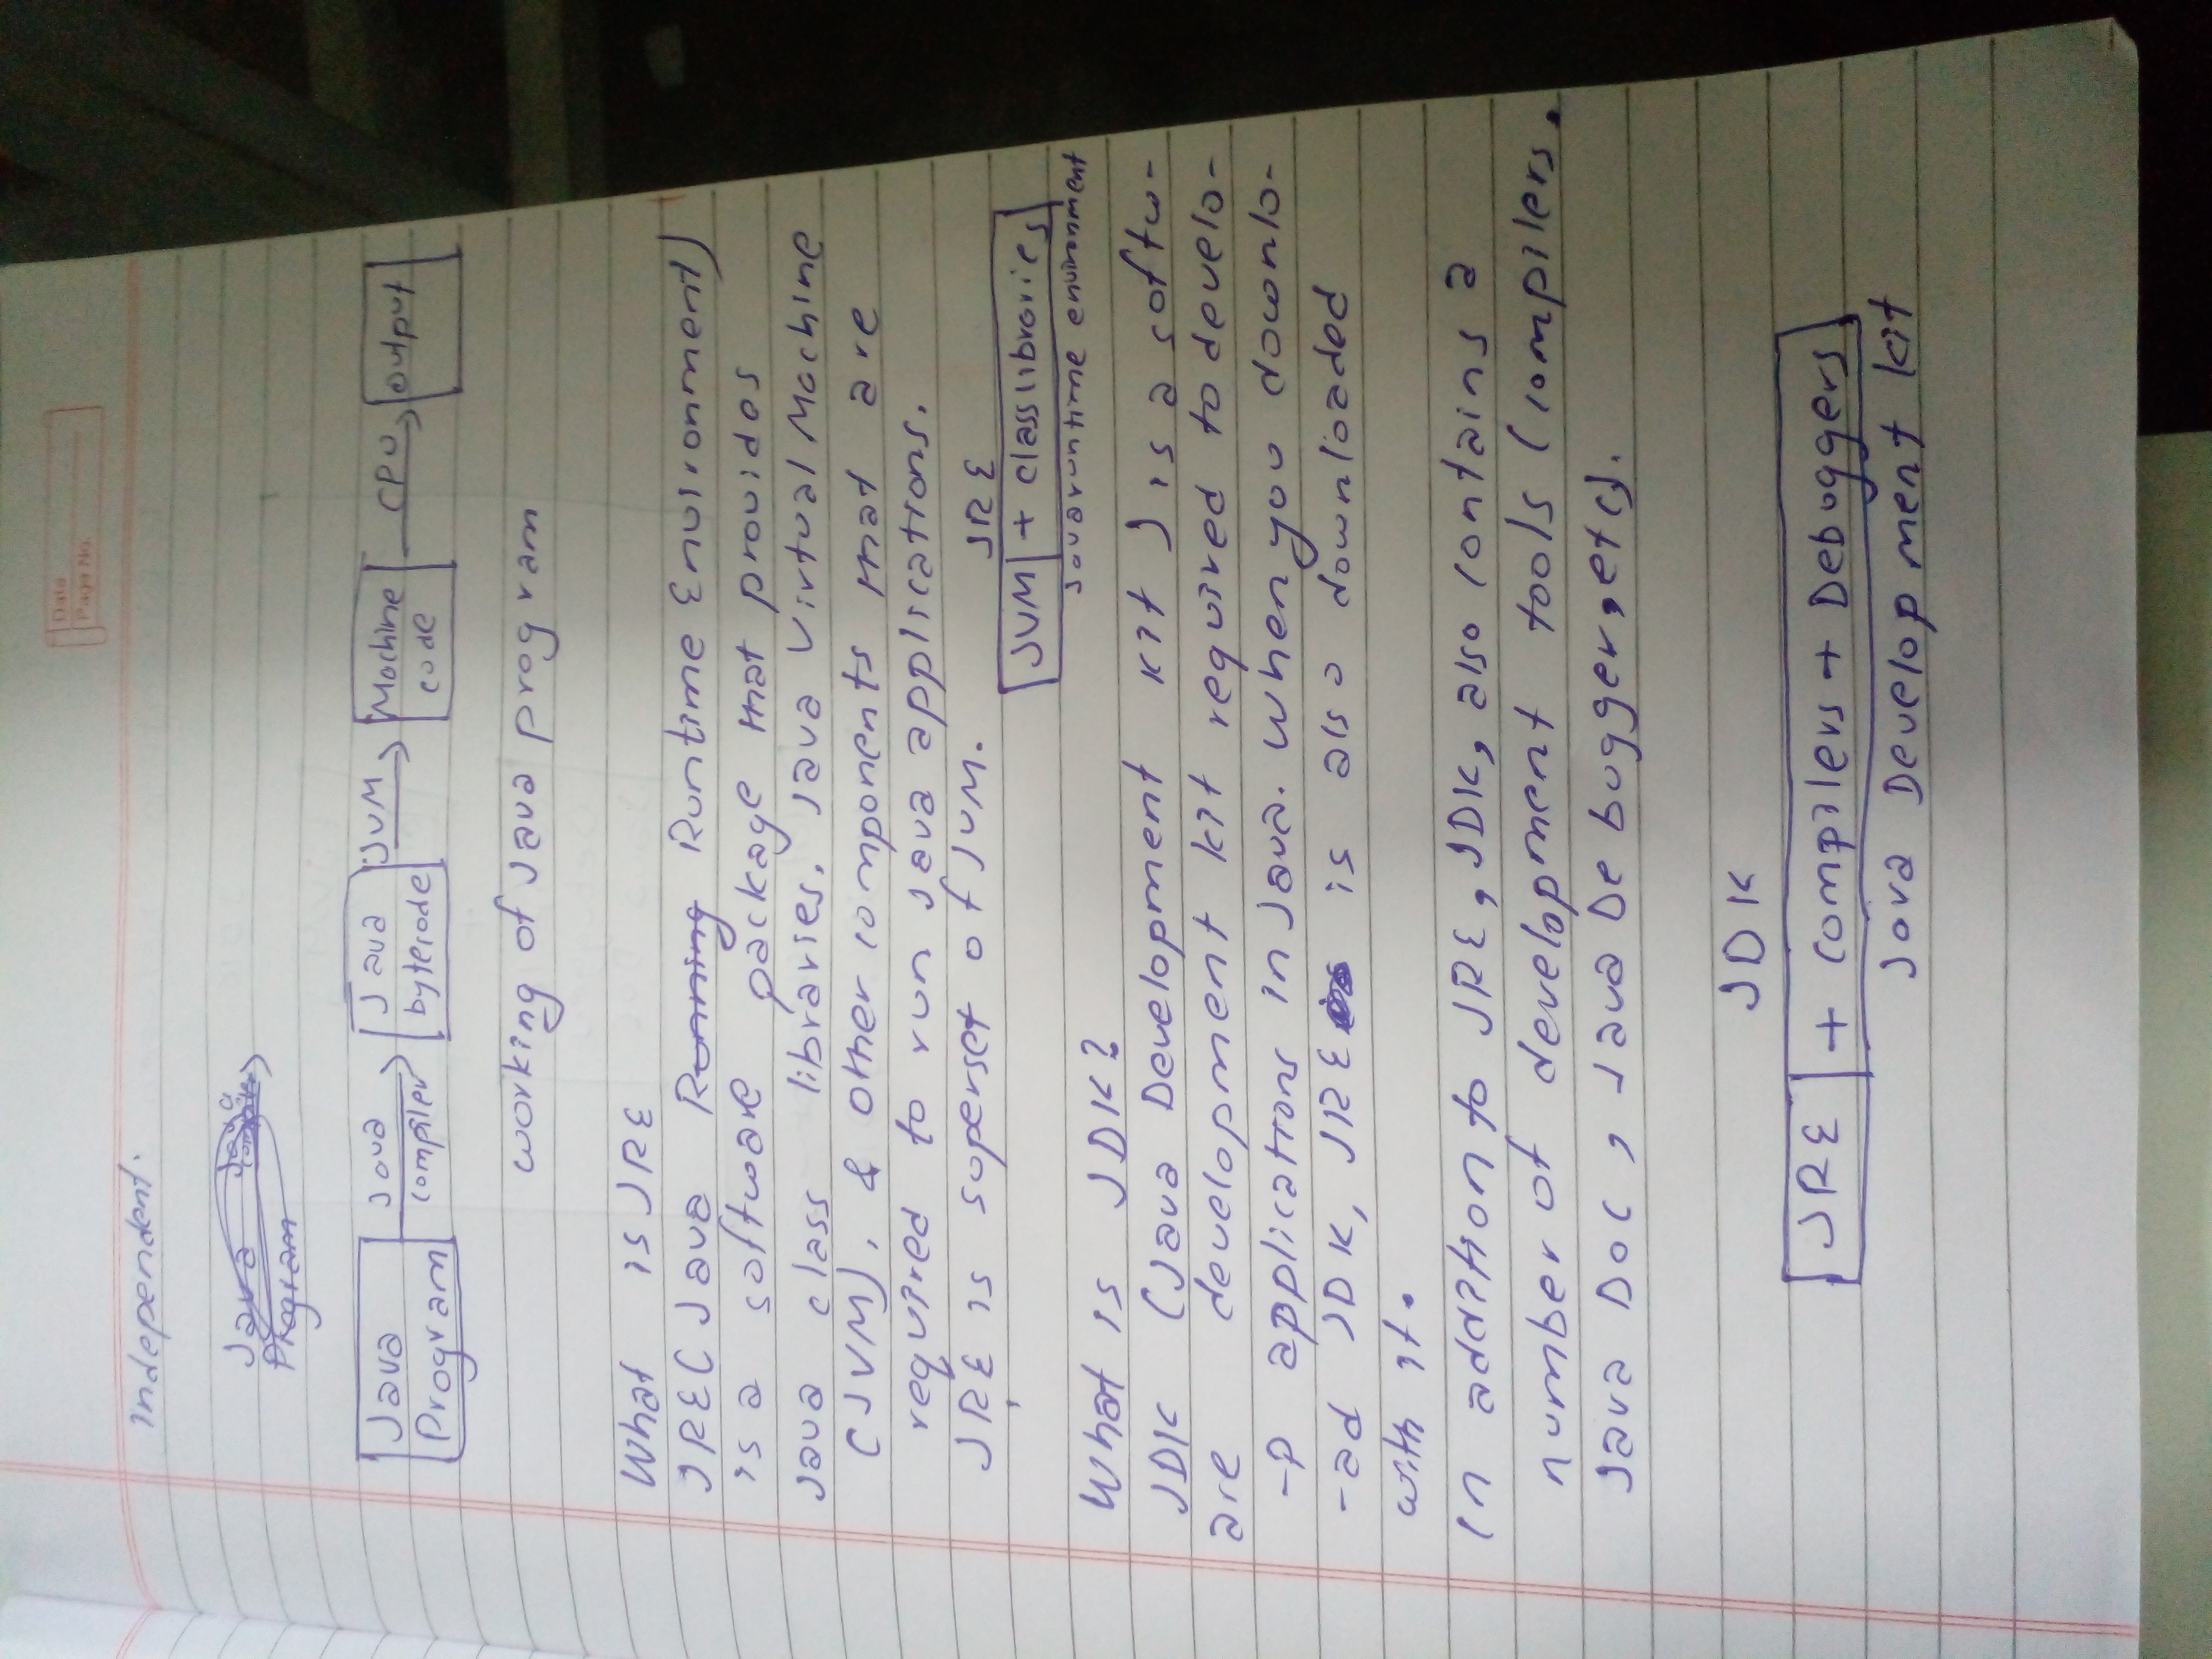 Date
Page No.
independent.
Java Java
compiler
Program
Java Java Java JVM Machine CPU output
Program compiler bytecode code
working of Java program
What is JRE
JRE( Java Running Runtime Environment)
is a software package that provides
Java class libraries, Java Virtual Machine
(JVM), & other components that are
required to run Java applications.
JRE is superset of JVM.
JRE
JVM + class libraries
Java runtime environment
What is JDK?
JDK (Java Development Kit) is a softw-
are development kit required to develo-
-p applications in Java. When you downlo-
-ad JDK, JRE is also downloaded
with it.
In addition to JRE, JDK, also contains a
number of development tools (compilers,
Java Doc, Java Debugger, etc).
JDK
JRE + compilers + Debuggers
Java Development Kit